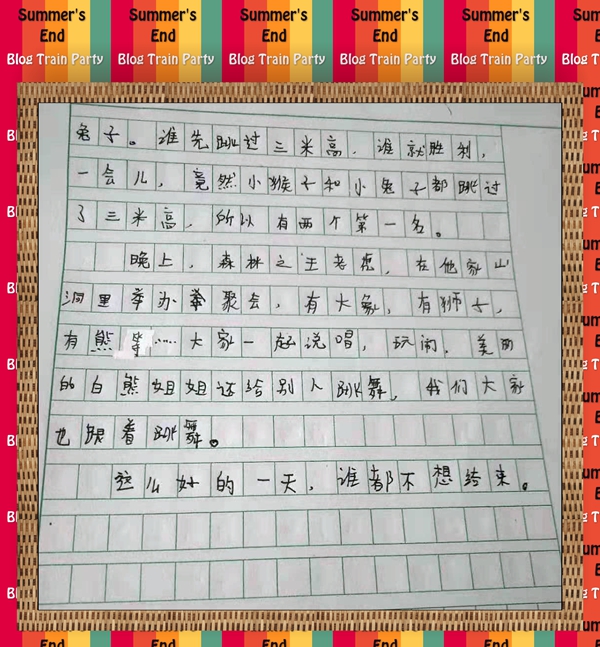 Summer's Summer's Summer's Summer's Summer's
End End End End End
Blog Train Party Blog Train Party Blog Train Party Blog Train Party Blog Train Party
兔子。谁先跳过三米高,谁就胜利,
一会儿,竟然小猴子和小兔子都跳过
了三米高,所以有两个第一名。
晚上,森林之王老虎,在他家山
洞里举办举聚会,有大象,有狮子,
有熊等……大家一起说唱,玩闹,美丽
的白熊姐姐还给别人跳舞,我们大家
也跟着跳舞。
这么好的一天,谁都不想结束。
End End End End End